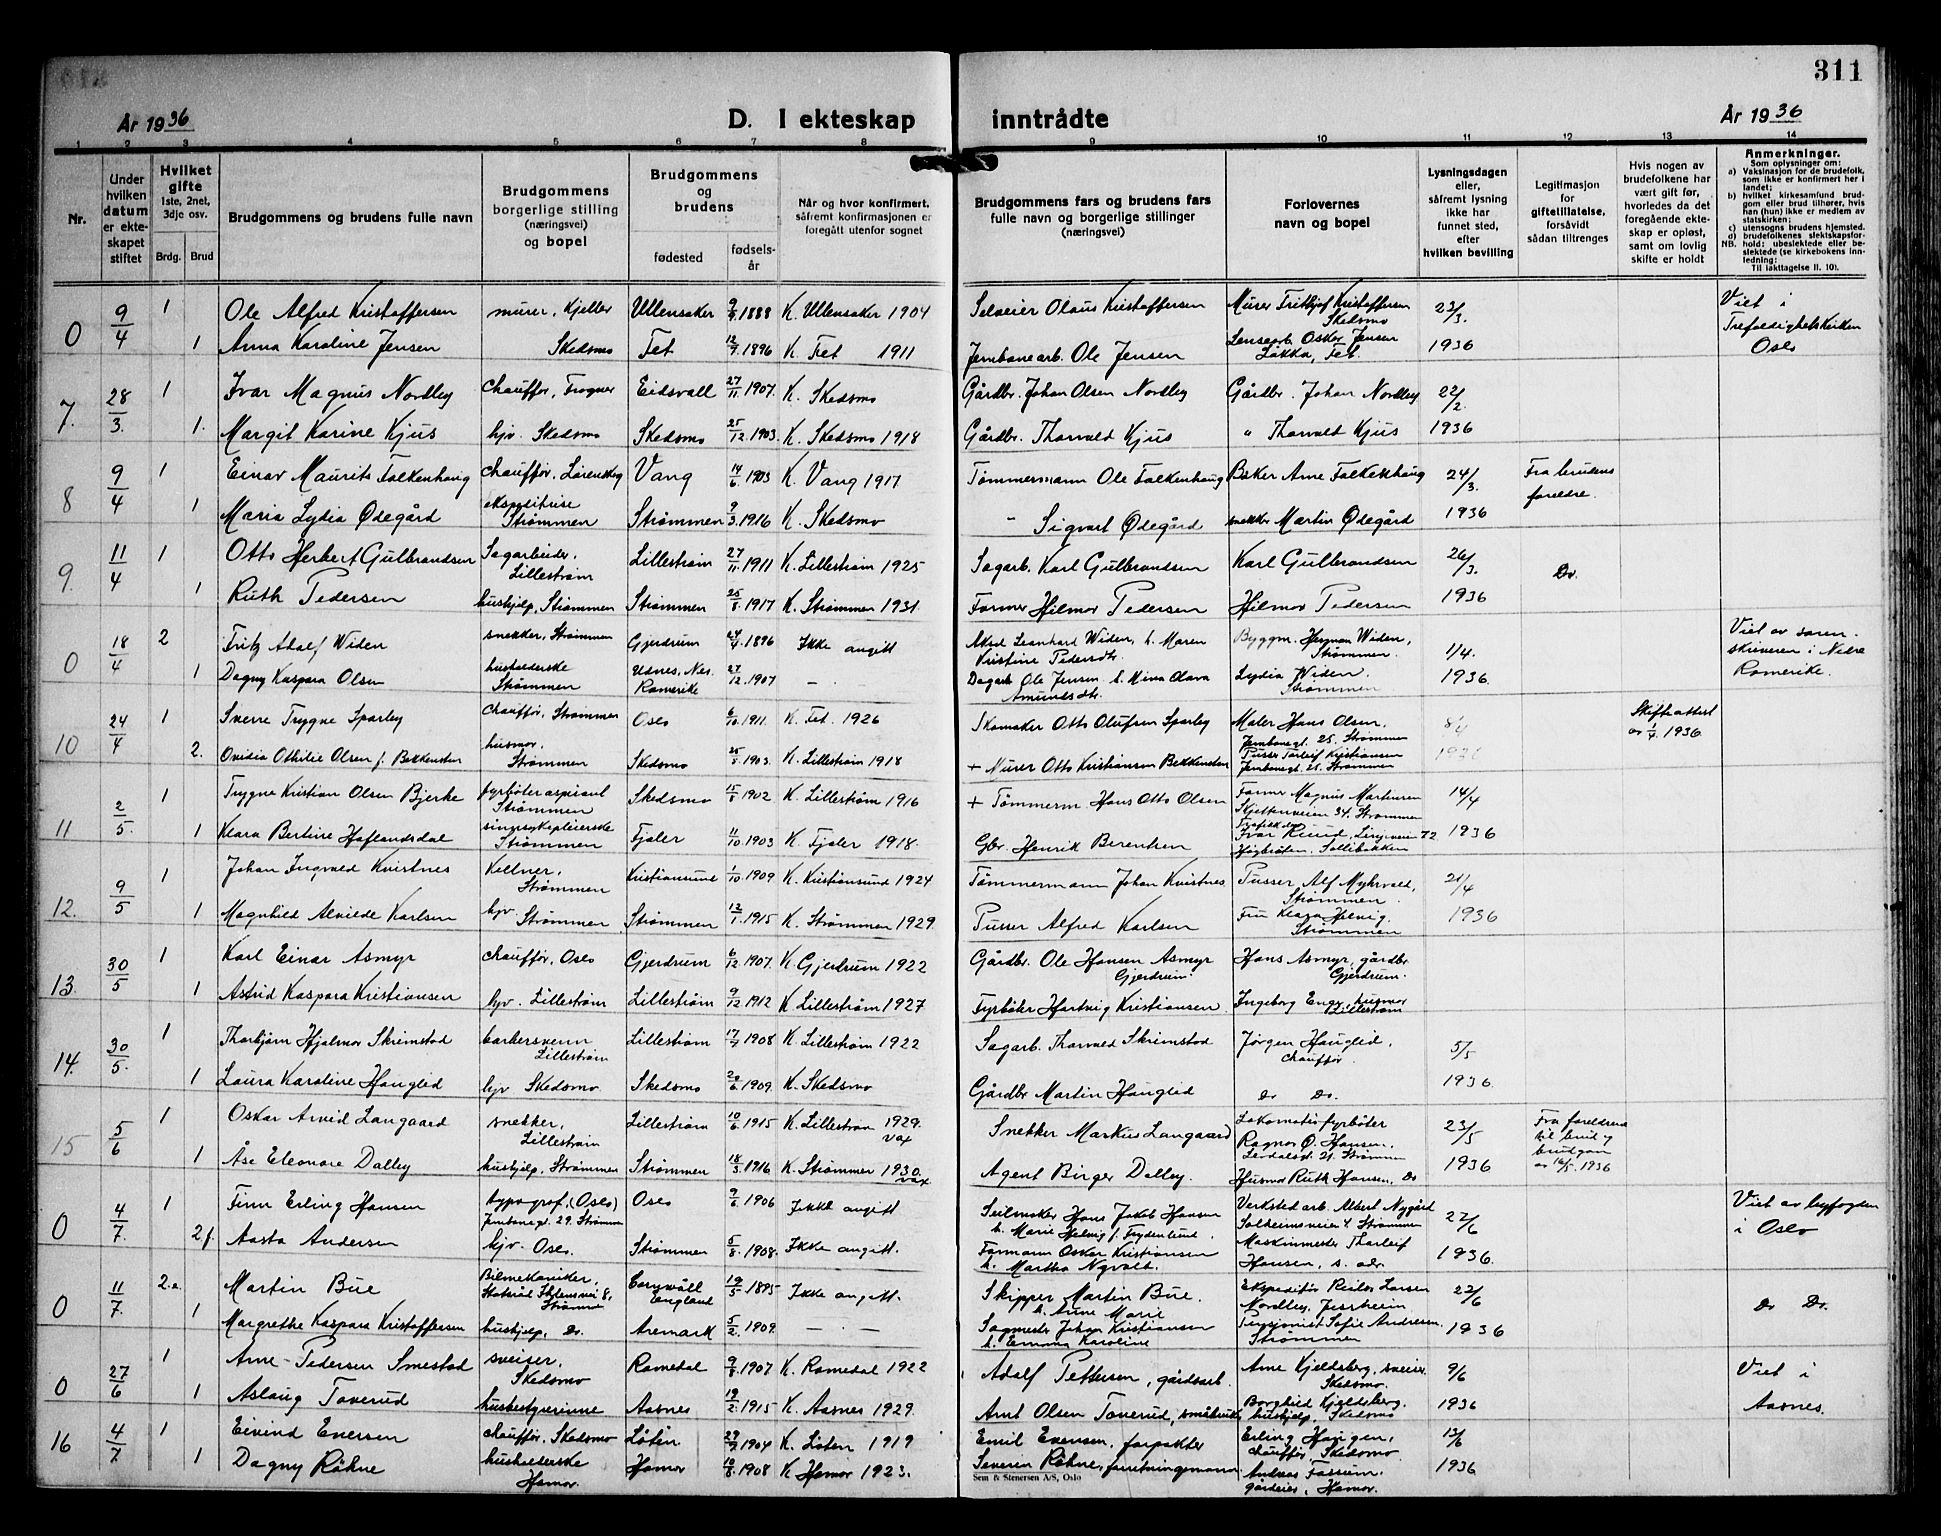 311
År 1936
D. I ekteskap inntrådte
År 1936
1 2 3 4 5 6 7 8 9 10 11 12 13 14
Nr.
Under hvilken datum er ekteskapet stiftet
Hvilket gifte 1ste, 2net, 3dje osv.
Brdg. Brud
Brudgommens og brudens fulle navn
Brudgommens borgerlige stilling (næringsvei) og bopel
Brudgommens og brudens
fødested
fødselsår
Når og hvor konfirmert, såfremt konfirmasjonen er foregått utenfor sognet
Brudgommens fars og brudens fars fulle navn og borgerlige stillinger (næringsvei)
Forlovernes navn og bopel
Lysningsdagen eller, såfremt lysning ikke har funnet sted, efter hvilken bevilling
Legitimasjon for giftetillatelse, forsåvidt sådan tiltrenges
Hvis nogen av brudefolkene har vært gift før, hvorledes da det foregående ekteskap er opløst, samt om lovlig skifte er holdt
Anmerkninger.
Som oplysninger om:
a) Vaksinasjon for de brudefolk, som ikke er konfirmert her i landet;
b) hvilket kirkesamfund brudgom eller brud tilhører, hvis han (hun) ikke er medlem av statskirken;
c) utensogns brudens hjemsted.
d) brudefolkenes slektskapsforhold: ubeslektede eller beslektede (se kirkebokens innledning;
NB. Til iakttagelse II. 10).
0 9/4 1 Ole Alfred Kristoffersen murer, Kjeller Ullensaker 1888 K. Ullensaker 1904 Selveier Olaus Kristoffersen Murer Frithjof Kristoffersen Skedsmo 23/3. Viet i Trefoldighetskirken Oslo
1 Anna Karoline Jensen Skedsmo Fet 1896 K. Fet 1911 Jernbanearb. Ole Jensen Lensearb. Oskar Jensen Løkka, Fet. 1936
7. 28/3. 1 Ivar Magnus Nordley Chauffør, Frogner Eidsvall 27/11. 1907. K. Skedsmo Gårdbr. Johan Olsen Nordley Gårdbr. Johan Nordley 22/2.
1. Margit Karine Kjus hjv. Skedsmo Skedsmo 25/12. 1903. K. Skedsmo 1918 Gårdbr. Thorvald Kjus " Thorvald Kjus 1936
8 9/4 1 Einar Maurits Falkenhaug Chauffør, Lørenskog Vang 14/6 1903 K. Vang 1917 Tømmermann Ole Falkenhaug Baker Arne Falkenhaug 24/3. Fra brudens foreldre.
1 Maria Lydia Ødegård ekspeditrise Strømmen Strømmen 9/3. 1916 K. Skedsmo " Sigvart Ødegård snekker Martin Ødegård 1936
9. 11/4 1 Otto Herbert Gulbrandsen Sagarbeider, Lillestrøm Lillestrøm 27/11. 1911 K. Lillestrøm 1925 Sagarb. Karl Gulbrandsen Karl Gulbrandsen 26/3. Do.
1 Ruth Pedersen hushjelp, Strømmen Strømmen 25/8. 1917 K. Strømmen 1931. Former Hilmar Pedersen Hilmar Pedersen 1936
0 18/4 2 Fritz Adolf Widen snekker, Strømmen Gjerdrum 24/4. 1896 Ikke angitt Aksel Leonhard Widen, h. Maren Kristine Pedersdtr. Byggm. Herman Widen, Strømmen. 1/4. Viet av sorenskriveren i Nedre Romerike.
1 Dagny Kaspara Olsen husholderske Strømmen Udnes, Nes. Romerike 27/12. 1907 — . — Dagarb. Ole Jensen h. Mina Olava Amundsdtr. Lydia Widen. Strømmen 1936
10 24/4 1 Sverre Trygve Sparby Chauffør, Strømmen Oslo 6/10. 1911. K. Fet. 1926 Skomaker Otto Olufsen Sparby Maler Hans Olsen. Jernbanegt. 25. Strømmen 8/4 Skifteattest av 1/4. 1936.
2. Ovidia Othilie Olsen f. Bekkensten husmor. Strømmen Skedsmo 1903. K. Lillestrøm 1918 + Murer Otto Kristiansen Bekkensten Pusser Torleif Kristiansen Jernbanegt. 25. Strømmen 1936
11 2/5. 1 Trygve Kristian Olsen Bjerke fyrbøteraspirant Strømmen Skedsmo 15/8 1902 K. Lillestrøm 1916 + Tømmerm. Hans Otto Olsen Former Magnus Martinsen Skjettenveien 34. Strømmen 14/4
1 Klara Bertine Haflandsdal sinnsykepleierske Strømmen Fjaler 11/10. 1903 K. Fjaler 1918. Gbr. Henrik Berentsen Ivar Ruud, Linjeveien 72 Høybråten. 1936
12. 9/5 1 Johan Ingvald Kvistnes Kellner, Strømmen Kristiansund 1/10. 1909 K. Kristiansund 1924 Tømmermann Johan Kvistnes Pusser Alf Myhrvold, Strømmen. 21/4
1 Magnhild Alvilde Karlsen hjv. Strømmen Strømmen 12/1. 1915 K. Strømmen 1929. Pusser Alfred Karlsen Fru Klara Helvig. Strømmen 1936
13. 30/5 1 Karl Einar Asmyr Chauffør, Oslo Gjerdrum 6/12 1907. K. Gjerdrum 1922 Gårdbr. Ole Hansen Asmyr Gjerdrum. Hans Asmyr, gårdbr. Gjerdrum.
1 Astrid Kaspara Kristiansen hjv. Lillestrøm Lillestrøm 9/12 1912 K Lillestrøm 1927 Fyrbøter Hartvig Kristiansen Ingeborg Enge, husmor Lillestrøm
14. 30/5. 1 Thorbjørn Hjalmar Skrimstad barbersvenn Lillestrøm Lillestrøm 1908 K. Lillestrøm 1922 Sagarb. Thorvald Skrimstad Jørgen Hauglid, Chauffør. 5/5
1 Laura Karoline Hauglid hjv Skedsmo. Skedsmo 20/6. 1909. K. Skedsmo Gårdbr Martin Hauglid Do Do. 1936.
15 5/6 1 Oskar Arvid Langaard snekker, Lillestrøm Lillestrøm 10/6 1915 K. Lillestrøm 1929. vax Snekker Markus Langaard Lokomotivfyrbøter Ragnar Ø. Hansen. 21. Strømmen 23/5 Fra foreldrene til brud og brudgom av 16/5. 1936
1 Åse Eleonore Dalley hushjelp, Strømmen Strømmen 18/3. 1916 K. Strømmen 1930. vax Agent Birger Dalley. Husmor Ruth Hansen, Do 1936
0 4/7. 1 Finn Erling Hansen typograf, (Oslo) Jernbanegt. 29. Strømmen Oslo 9/6 1906 Ikke angitt Seilmaker Hans Jakob Hansen h. Marie Helvig f. Frydenlund. Verkstedarb. Albert Nygård Solheimsveien 4 Strømmen 22/6 Viet av byfogden i Oslo
2 f. Aasta Andersen hjv. Oslo. Strømmen 5/8. 1908. Ikke angitt. Formann Oskar Kristiansen h. Martha Nyvolt. Maskinmester Thorleif Hansen, s. adr. 1936.
0 11/7. 2.e. Martin Bue Bilmekaniker, Strømmen England 19/5 1895 Ikke angitt. Skipper Martin Bue. h. Anne Marie Ekspeditør Reidar Larsen Nordley, Jessheim 23/6 Do Do.
1 Margrethe Kaspara Kristoffersen hushjelp, Do. Aremark 5/2. 1909. — . — Sagmester Johan Kristiansen h. Emma Karoline Pensjonist Sofie Andresen. Strømmen 1936
0 27/6 1 Arne Pedersen Smestad sveiser, Skedsmo Romedal 9/8 1907 K. Romedal 1922 Adolf Pettersen, gårdsarb. Arne Kjeldsberg, sveiser Skedsmo. 9/6 Viet i Aasnes.
1 Aslaug Toverud husbestyrerinne Aasnes 19/2. 1915 K. Aasnes 1929. Arnt Olsen Toverud, småbruker Borghild Kjeldsberg. hushjelp, Skedsmo 1936
16 4/7 1 Eivind Evensen chauffør, Skedsmo Løten 1904 K. Løten 1919 Emil Evensen, forpakter Erling Haugen, chauffør, Skedsmo. 13/6
1 Dagny Røhne husholderske Hamar. Hamar 10/8. 1908 K Hamar 1923. Severin Røhne, forretningsmann Andreas Fossum. gårdeier, Hamar. 1936
Sem & Stenersen A/S, Oslo